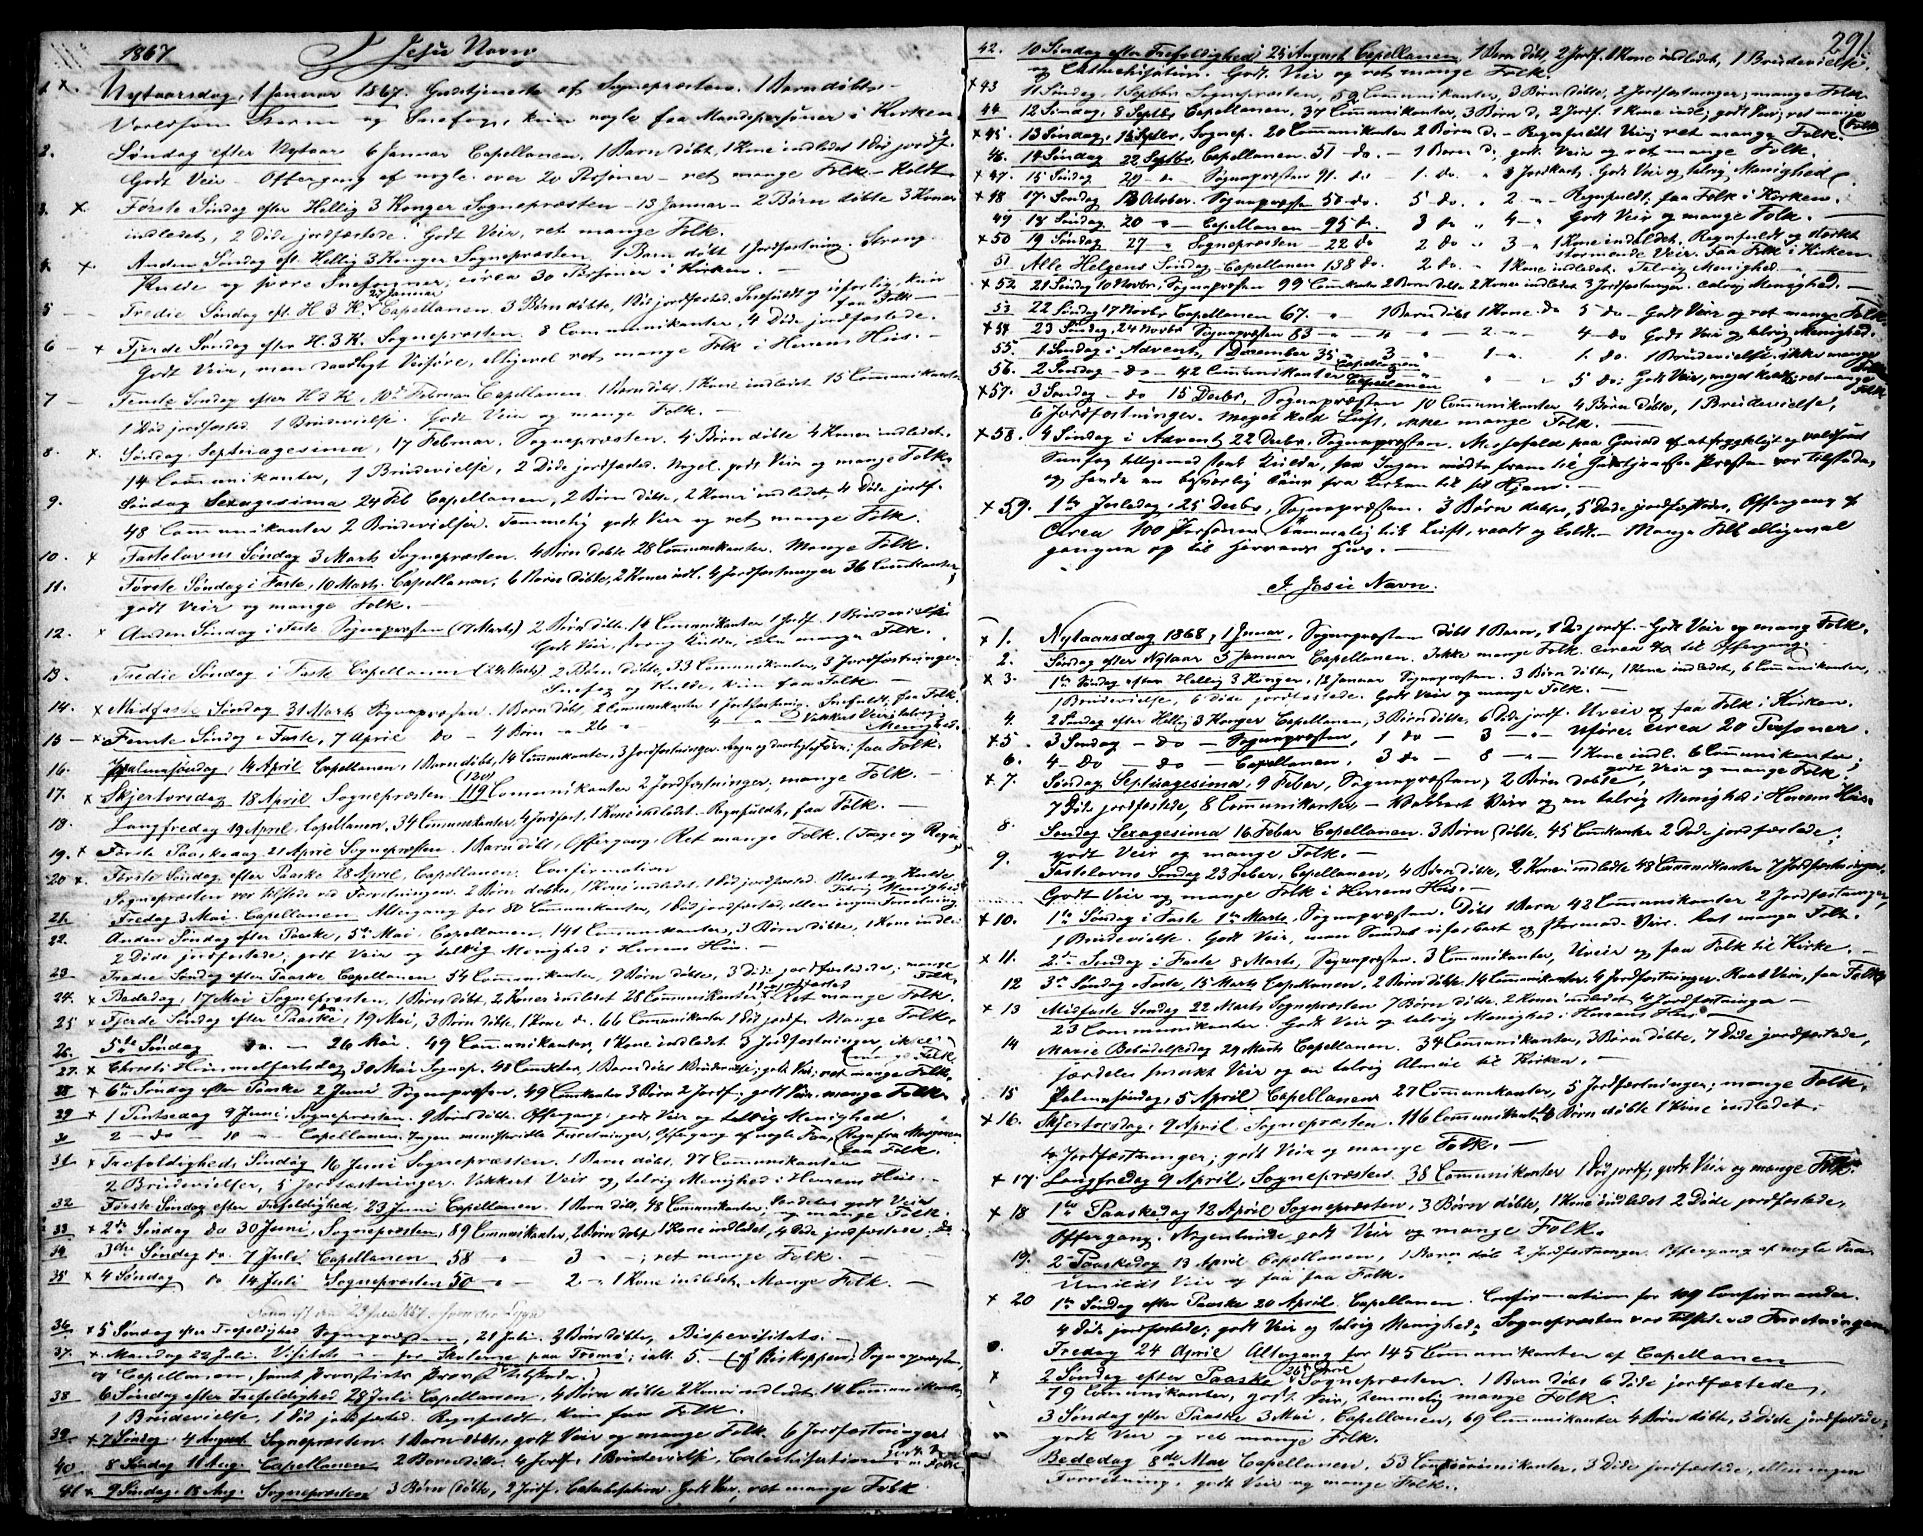 1867 I Jesu Navn
1. x. Nytaarsdag, 1 Januar 1867. Gudstjeneste af Sognepræsten. 1 Barn döbt.
Voldsom Storm og Snefog, kun nogle faa Mandspersoner i Kirken.
2. Søndag efter Nytaar 6 Januar Capellanen, 1 Barn döbt, 1 Kone indledet 1 Död jordf.
Godt Veir - Offergang af nogle over 20 Personer - ret mange Folk - Koldt
3. x. Første Søndag efter Hellig 3 Konger Sognepræsten - 13 Januar - 2 Börn döbte 3 Koner
indledet, 2 Döde jordfæstede. Godt Veir, ret mange Folk.
4. x. Anden Søndag eft. Hellig 3 Konger Sognepræsten 1 Barn döbt 1 Jordfæstning. Streng
Kulde og svære Snefogner, circa 30 Personer i Kirken. -
5 - Tredie Søndag eft. H 3 K. 27 Januar Capellanen. 3 Börn döbte, 1 Död jordfæsted. Snefuldt og uforlig, kun
faa Folk
6 x Fjerde Søndag efter H. 3 K. Sognepræsten. 8 Communikanter, 4 Döde jordfæstede.
Godt Veir, men daarligt Veiføre, alligevel ret mange Folk i Herrens Huus. -
7 - Femte Søndag efter H 3 K, 10de Februar Capellanen. 1 Barn döbt, 1 Kone indledet 15 Communikanter
1 Död jordfæsted. 1 Brudevielse. Godt Veir og mange Folk. -
8. x. Søndag Septuagesima, 17 Februar. Sognepræsten. 4 Börn döbte 4 Koner indledet.
14 Communikanter, 1 Brudevielse, 2 Döde jordfæstede. Noget godt Veir og mange Folk.
9. Søndag Sexagesima 24 Feb Capellanen, 2 Börn döbte, 2 Koner indledet 4 Döde jordf.
48 Communikanter 2 Brudevielser. Temmelig godt Veir og ret mange Folk.
10. x Fastelavns Søndag 3 Marts Sognepræsten. 4 Börn döbte 28 Communikanter. Mange Folk.
11. Første Søndag i Faste, 10 Marts. Capellanen, 6 Börn döbte, 2 Koner indl. 4 Jordfæstninger 36 Communkanter,
godt Veir og mange Folk. -
12. x Anden Søndag i Faste Sognepræsten (17 Marts) 2 Börn döbte. 14 Communikanter 1 Jordf. 1 Brudevielse
Godt Veir, streng Kulde, ikke mange Folk.
13. Tredie Søndag i Faste Capellanen (24 Marts) 2 Börn döbte, 33 Communikanter, 3 Jordfæstninger.
Snefog og Kulde, kun faa Folk -
14. x Midfaste Søndag 31 Marts Sognepræsten. 1 Barn döbt, 2 Communikanter 1 Jordfæstning. Snefuldt, faa Folk
15 - x. Femte Søndag i Faste, 7 April do - 4 Börn - 26 - 4 - Vakkert Veir, talrig Menighed.
16. Palmesøndag, 14 April Capellanen, 1 Barn döbt, 14 Communikanter, 3 Jordfæstninger. Regn og daarligt Føre; faa Folk.
17. x Skjertorsdag 18 April Sognepræsten (120) 119 Communikanter 2 Jordfæstninger, mange Folk. -
18. Langfredag 19 April, Capellanen, 34 Communikanter, 4 Jordfæst, 1 Kone indledet. Regnfuldt, faa Folk. -
19. x Første Paaskedag 21 April Sognepræsten. 1 Barn döbt, Offergang. Ret mange Folk. (Taage og Regn)
20 x. Første Søndag efter Paaske 28 April, Capellanen. Confirmation
Sognepræsten var tilstede ved Forretningen. 2 Börn döbte, 1 Kone indledet. 1 Död jordfæsted. Blæst og Kulde. Talrig Menighed.
21. Fredag 3 Mai. Capellanen Altergang for 80 Communikanter, 1 Död jordfæsted, ellers ingen Forretning
22. Anden Søndag efter Paaske, 5te Mai. Capellanen, 141 Communikanter, 3 Börn döbte, 1 Kone indledet
2 Döde jordfæstede, godt Veir og talrig Menighed i Herrens Huus. -
23 Tredie Søndag efter Paaske Capellanen 54 Communikanter, 9 Börn döbte, 3 Döde jordfæstede, mange Folk.
24. x Bededag, 17 Mai Sognepræsten, 1 Barn döbt, 2 Koner indledet 28 Communikanter 1 Död jordfæsted Ret mange Folk.
25 x Fjerde Søndag efter Paaske, do. 19 Mai, 3 Börn döbte, 1 Kone do. 66 Communikanter 1 Död jordf. Mange Folk.
26. 5te Søndag do. - 26 Mai. 49 Communikanter, 1 Kone indledet 3 Jordfæstninger, ikke mange Folk
27. x Christi Himmelfartsdag 30 Mai Sognep. 48 Comkter, 1 Barn döbt 1 Brudevielse; godt Veir; ret mange Folk.
28 x 6te Søndag efter Paaske 2 Juni Sognepræsten, 49 Comkanter 3 Börn 2 Jordf.; godt Veir, mange Folk.
29 x 1 Pintsedag 9 Juni. Sognepræsten. 9 Börn döbte. Offergang; godt Veir og talrig Menighed.
30 2 - do - 10 - Capellanen. Ingen ministerielle Forretninger, Offergang af nogle Faa, Regn fra Morgenen faa Folk.
31 x Trefoldigheds Søndag 16 Juni Sognepræsten. 1 Barn döbt, 97 Communikanter
2 Brudevielser, 5 Jordfæstninger. Vakkert Veir og talrig Menighed i Herrens Huus.
32 Første Søndag efter Trefoldighed, 23 Juni Capellanen. 1 Barn döbt, 48 Communikanter; Særdeles godt Veir og mange Folk.
33 x 2den Søndag do 30 Juni, Sognepræsten, 89 Communikanter, 2 Börn döbt 1 Kone indledet, 4 Döde jordfæstede, do
34 3die Søndag do. 7 Juli Capellanen 58 " 3 - ; ret mange Folk.
35 x 4 Søndag do 14 Juli Sognepræsten 50 - " - 2 - 1 Kone indledet. Mange Folk. -
36 x 5 Søndag efter Trefoldighed Sognepræsten, 21 Juli. 3 Börn döbte, Bispevisitats. -
37. x. Mandag 22 Juli. Visitats - for Skolerne paa Tromø; ialt 5. - (af Biskoppen) Sognepræsten,
og Capellanen, samt Provstiets Provst tilstede.
38 6 Søndag efter Trefoldighed 28 Juli Capellanen, 4 Börn döbte 2 Koner indledet, 14 Communikanter
1 Brudevielse, 1 Död jordfæsted. Regnfuldt, kun faa Folk.
39. x 7 Søndag, 4 August Sognepræsten. 1 Barn döbt, godt Veir og mange Folk. 6 Jordfæstninger
40 8 Søndag 11 Aug. Capellanen 2 Börn döbte, 4 Jordf. 1 Brudevielse, Catechisation
41 x 9 Søndag. 18 Aug. Sognepræsten 3 Börn döbte, 2 Jordf. Catechisation. Godt Veir, ret mange Folk
291.
42. 10 Søndag efter Trefoldighed; 25 August Capellanen 1 Barn döbt, 2 Jordf. 1 Kone indledet, 1 Brudevielse
og Catechisation. Godt Veir og ret mange Folk.
x 43 11 Søndag, 1 Septbr Sognepræsten, 59 Communikanter, 3 Börn döbte, 2 Jordfæstninger; mange Folk
44 12 Søndag, 8 Septbr Capellanen, 37 Communikanter, 3 Börn d, 2 Jordf. 1 Kone indl; godt Veir; ret mange Folk
x 45. 13 Søndag, 15 Septbr, Sognep. 20 Communikanter 2 Börn d. - Regnfuldt Veir; ret mange Folk.
46. 14 Søndag 22 Septbr, Capellanen. 51 - do. - 1 Barn d; godt Veir og ret mange Folk.
x 47. 15 Søndag 29 - do Sognepræsten 91. do - 1. do. " 3 Jordkast. Godt Veir og talrig Menighed.
x 48 17. Søndag 13 October. Sognepræsten 50 do. 5 do. " 2 - Regnfuldt, faa Folk i Kirken.
49 18 Søndag 20 " - Capellanen - 95 do. 3 do " 4 - " Godt Veir og mange Folk. -
x 50 19 Søndag 27 " Sognepræsten - 22 do 2 do " 3 " 1 Kone indledet. Regnfuldt og stærkt
stormende Veir. Faa Folk i Kirken.
51 Alle Helgens Søndag Capellanen 138 do. 2 do. " 1 Kone indledet. Talrig Menighed. -
x 52 21 Søndag 10 Novbr, Sognepræsten 99 Commkanter 2 Börn döbte 2 Koner indledet 3 Jordfæstninger. talrig Menighed. -
53 22 Søndag 17 Novbr Capellanen 67. - " 1 Barn döbt 1 Kone do 5 do - Godt Veir og ret mange Folk
x 54 23 Søndag, 24 Novbr Sognepræsten 83 - " 4 - " 2 - " 4 - do Godt Veir og talrig Menighed.
55. 1 Søndag i Advent, 1 December 35 " 3 " 1 " 1. do. 1 Brudevielse, ikke mange Folk
Capellanen
56. 2 Søndag - do - 42 Communikanter " 5 do; Godt Veir, meget koldt; ret mange Folk
Capellanen
x 57. 3 Søndag - do 15 Decbr, Sognepræsten 10 Communikanter 4 Börn döbte, 1 Brudevielse,
6 Jordfæstninger. Meget kold Luft, ikke mange Folk.
x 58. 4 Søndag i Advent, 22 Decbr, Sognepræsten. Messefald paa Grund af et frygteligt og voldsomt
Snefog tilligemed stærk Kulde, saa Ingen mødte frem til Gudstjenesten. Præsten var tilstede,
og havde en besværlig Reise fra Kirken til sit Hjem. -
x 59. 1ste Juledag, 25 Decbr, Sognepræsten. 3 Börn döbte, 5 Döde jordfæstede, Offergang af
circa 100 Personer temmelig tyk Luft, vaadt og koldt. - Mange Folk alligevel
gangne op til Herrens Huus. -
I Jesu Navn.
x 1. Nytaarsdag 1868, 1 Januar, Sognepræsten döbt 1 Barn, 1 Död jordf. - Godt Veir og mang Folk.
2. Søndag efter Nytaar 5 Januar Capellanen. Ikke mange Folk, circa 40 til Offergang
x 3. 1ste Søndag efter Hellig 3 Konger, 12 Januar Sognepræsten. 3 Börn döbte, 1 Kone indledet, 6 Communikanter,
1 Brudevielse, 6 döde jordfæstede. Godt Veir og mange Folk. -
4. 2 Søndag efter Hellig 3 Konger Capellanen, 3 Börn döbte, 6 Döde jordf. Uveir og faa Folk i Kirken.
x 5. 3 Søndag - do - Sognepræsten, 1 do - 3 " - Uføre. circa 20 Personer.
6. 4 - do - do - Capellanen, 3 do - 8 - " - 1 Kone indl. 6 Communikanter,
godt Veir og mange Folk.
x 7. Søndag Septuagesima, 9 Feber, Sognepræsten; 2 Börn döbte,
7 Döde jordfæstede, 8 Communikanter - Vakkert Veir og en talrig Menighed i Herrens Huus.
8. Søndag Sexagesima 16 Febar Capellanen. 3 Börn döbte. 45 Comkanter 2 Döde jordfæstede,
godt Veir og mange Folk. -
9. Fastelavns Søndag 23 Feber, Capellanen, 4 Börn döbte, 2 Koner indledte 48 Communikanter 7 Jordfæstninger.
Godt Veir og mange Folk i Herrens Huus. -
x 10. 1ste Søndag i Faste 1ste Marts, Sognepræsten. Döbt 1 Barn 42 Communikanter 2 Jordfæstninger
1 Brudevielse. Godt Veir, men Sundet ufarbart og stormed. Veir. Ret mange Folk.
x 11. 2den Søndag i Faste 8 Marts, Sognepræsten. 3 Communikanter, Uveir og faa Folk til Kirke. -
12 3die Søndag i Faste, 15 Marts Capellanen, 2 Börn döbte. 14 Communikanter, 4 Jordfæstninger. Raat Veir, faa Folk
x 13 Midfaste Søndag 22 Marts Sognepræsten 7 Börn döbte. 2 Koner indledet 4 Jordfæstninger -
23 Communikanter. Godt Veir og talrig Menighed i Herrens Huus -
14 Mariæ Bebudelsesdag 29 Marts Capellanen. 34 Communikanter, 3 Börn döbte, 7 Döde jordfæstede,
særdeles smukt Veir og en talrig Almue til Kirken. -
15 Palmesøndag, 5 April Capellanen 27 Communikanter, 5 Jordfæstninger; mange Folk.
x 16. Skjertorsdag, 9 April. Sognepræsten. 116 Communikanter, 3 Börn döbte 1 Kone indledet.
4 Jordfæstninger; godt Veir og mange Folk. -
x 17. Langfredag 9 April, Sognepræsten. 38 Communikanter 1 Död jordf; godt Veir og mange Folk.
x 18 1ste Paaskedag 12 April Sognepræsten, 3 Börn döbte, 1 Kone indledet 2 Döde jordfæstede,
Offergang. Nogenlunde godt Veir og mange Folk.
19. 2 Paaskedag 13 April Capellanen, 1 Barn döbt 2 Jordfæstninger. Offergang af nogle Faa
Umildt Veir og faa faa Folk.
x 20 1ste Søndag efter Paaske 20 April. Capellanen. Confirmation for 109 Confirmander.
4 döde jordfæstede; godt Veir og talrig Menighed; Sognepræsten var tilstede ved Forretningen
Fredag 24 April Altergang for 145 Communikanter af Capellanen
x 2 Søndag efter Paaske 26 April Sognepræsten. 1 Barn döbt 6 Döde jordfæstede,
79 Communikanter, godt Veir, temmelig mange Folk.
3 Søndag efter Paaske 3 Mai. Capellanen, 69 Communikanter 4 Börn döbte, 3 Döde jordfæstede;
godt Veir og ret mange Folk.
Bededag 8de Mai Capellanen, 53 Communikanter, 3 Döde jordfæstede, ellers ingen
Forretning; godt Veir og mange Folk. -